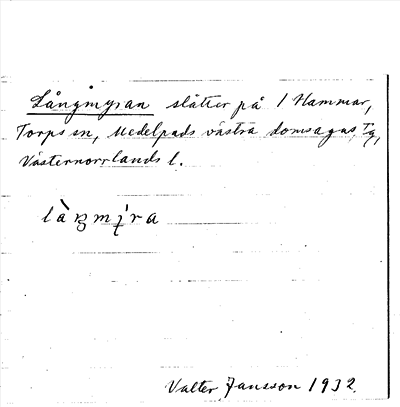 Långmyran slåtter på 1 Hammar,
Torps sn, Medelpads västra domsagas tg,
Västernorrlands l.
Valter Jansson 1932.